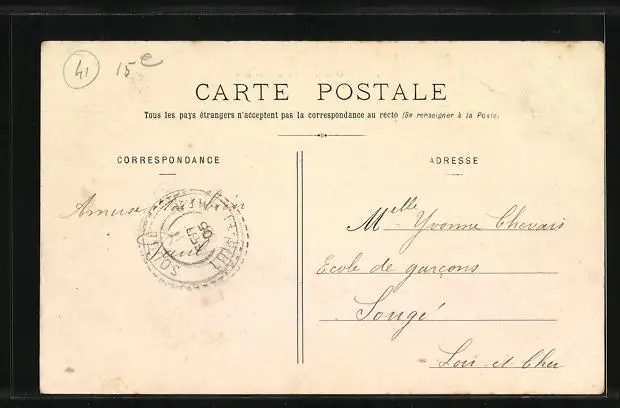 41 15e
CARTE POSTALE
Tous les pays étrangers n'acceptent pas la correspondance au recto (Se renseigner à la Poste)
CORRESPONDANCE
ADRESSE
Amuse
Melle Yvonne Chevais
Ecole de garçons
Sougé
Loir et Cher
SOUGÉ
05